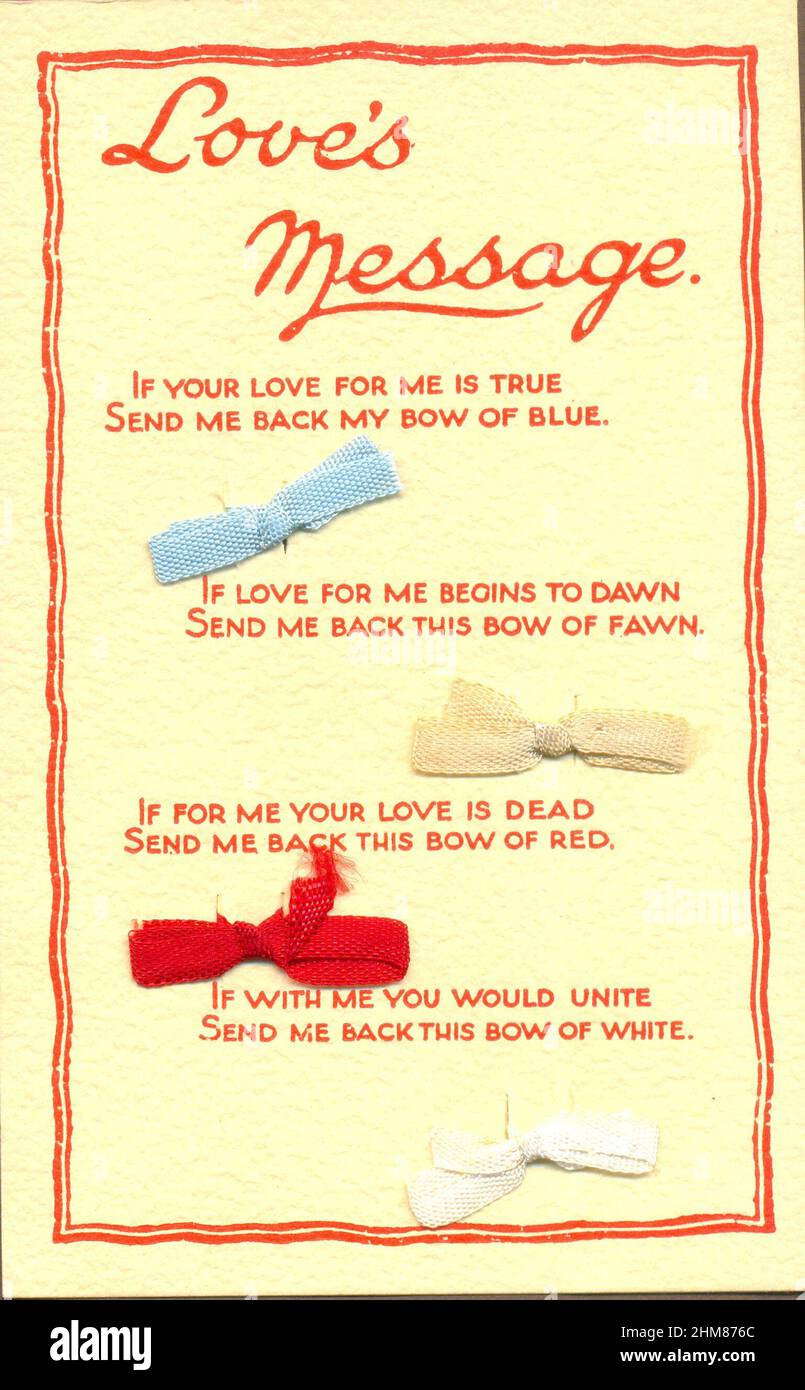 Love's
Message.
IF YOUR LOVE FOR ME IS TRUE
SEND ME BACK MY BOW OF BLUE.
IF LOVE FOR ME BEGINS TO DAWN
SEND ME BACK THIS BOW OF FAWN.
IF FOR ME YOUR LOVE IS DEAD
SEND ME BACK THIS BOW OF RED.
IF WITH ME YOU WOULD UNITE
SEND ME BACK THIS BOW OF WHITE.
alamy
alamy
alamy
alamy
Image ID: 2HM876C
www.alamy.com